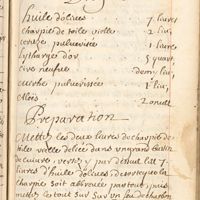 huile d'olives 7 livres
charpis de toile vielle 2 liv,
ceruse pulverisée 1 livre
lytharge d'or 5 quart
cire neufue demy liv,
mirrhe pulverisée 1 liv,
Aloës 2 onces
Preparation
Mettez les deux livres de charpis de
toile vielle deliée dans un grand bassin
de cuivre, versez y par dessus les 7
livres d'huile d'olives, de sorte que la
charpie soit abbreuée partout, puis
mettez le tout sur un feu de charbon